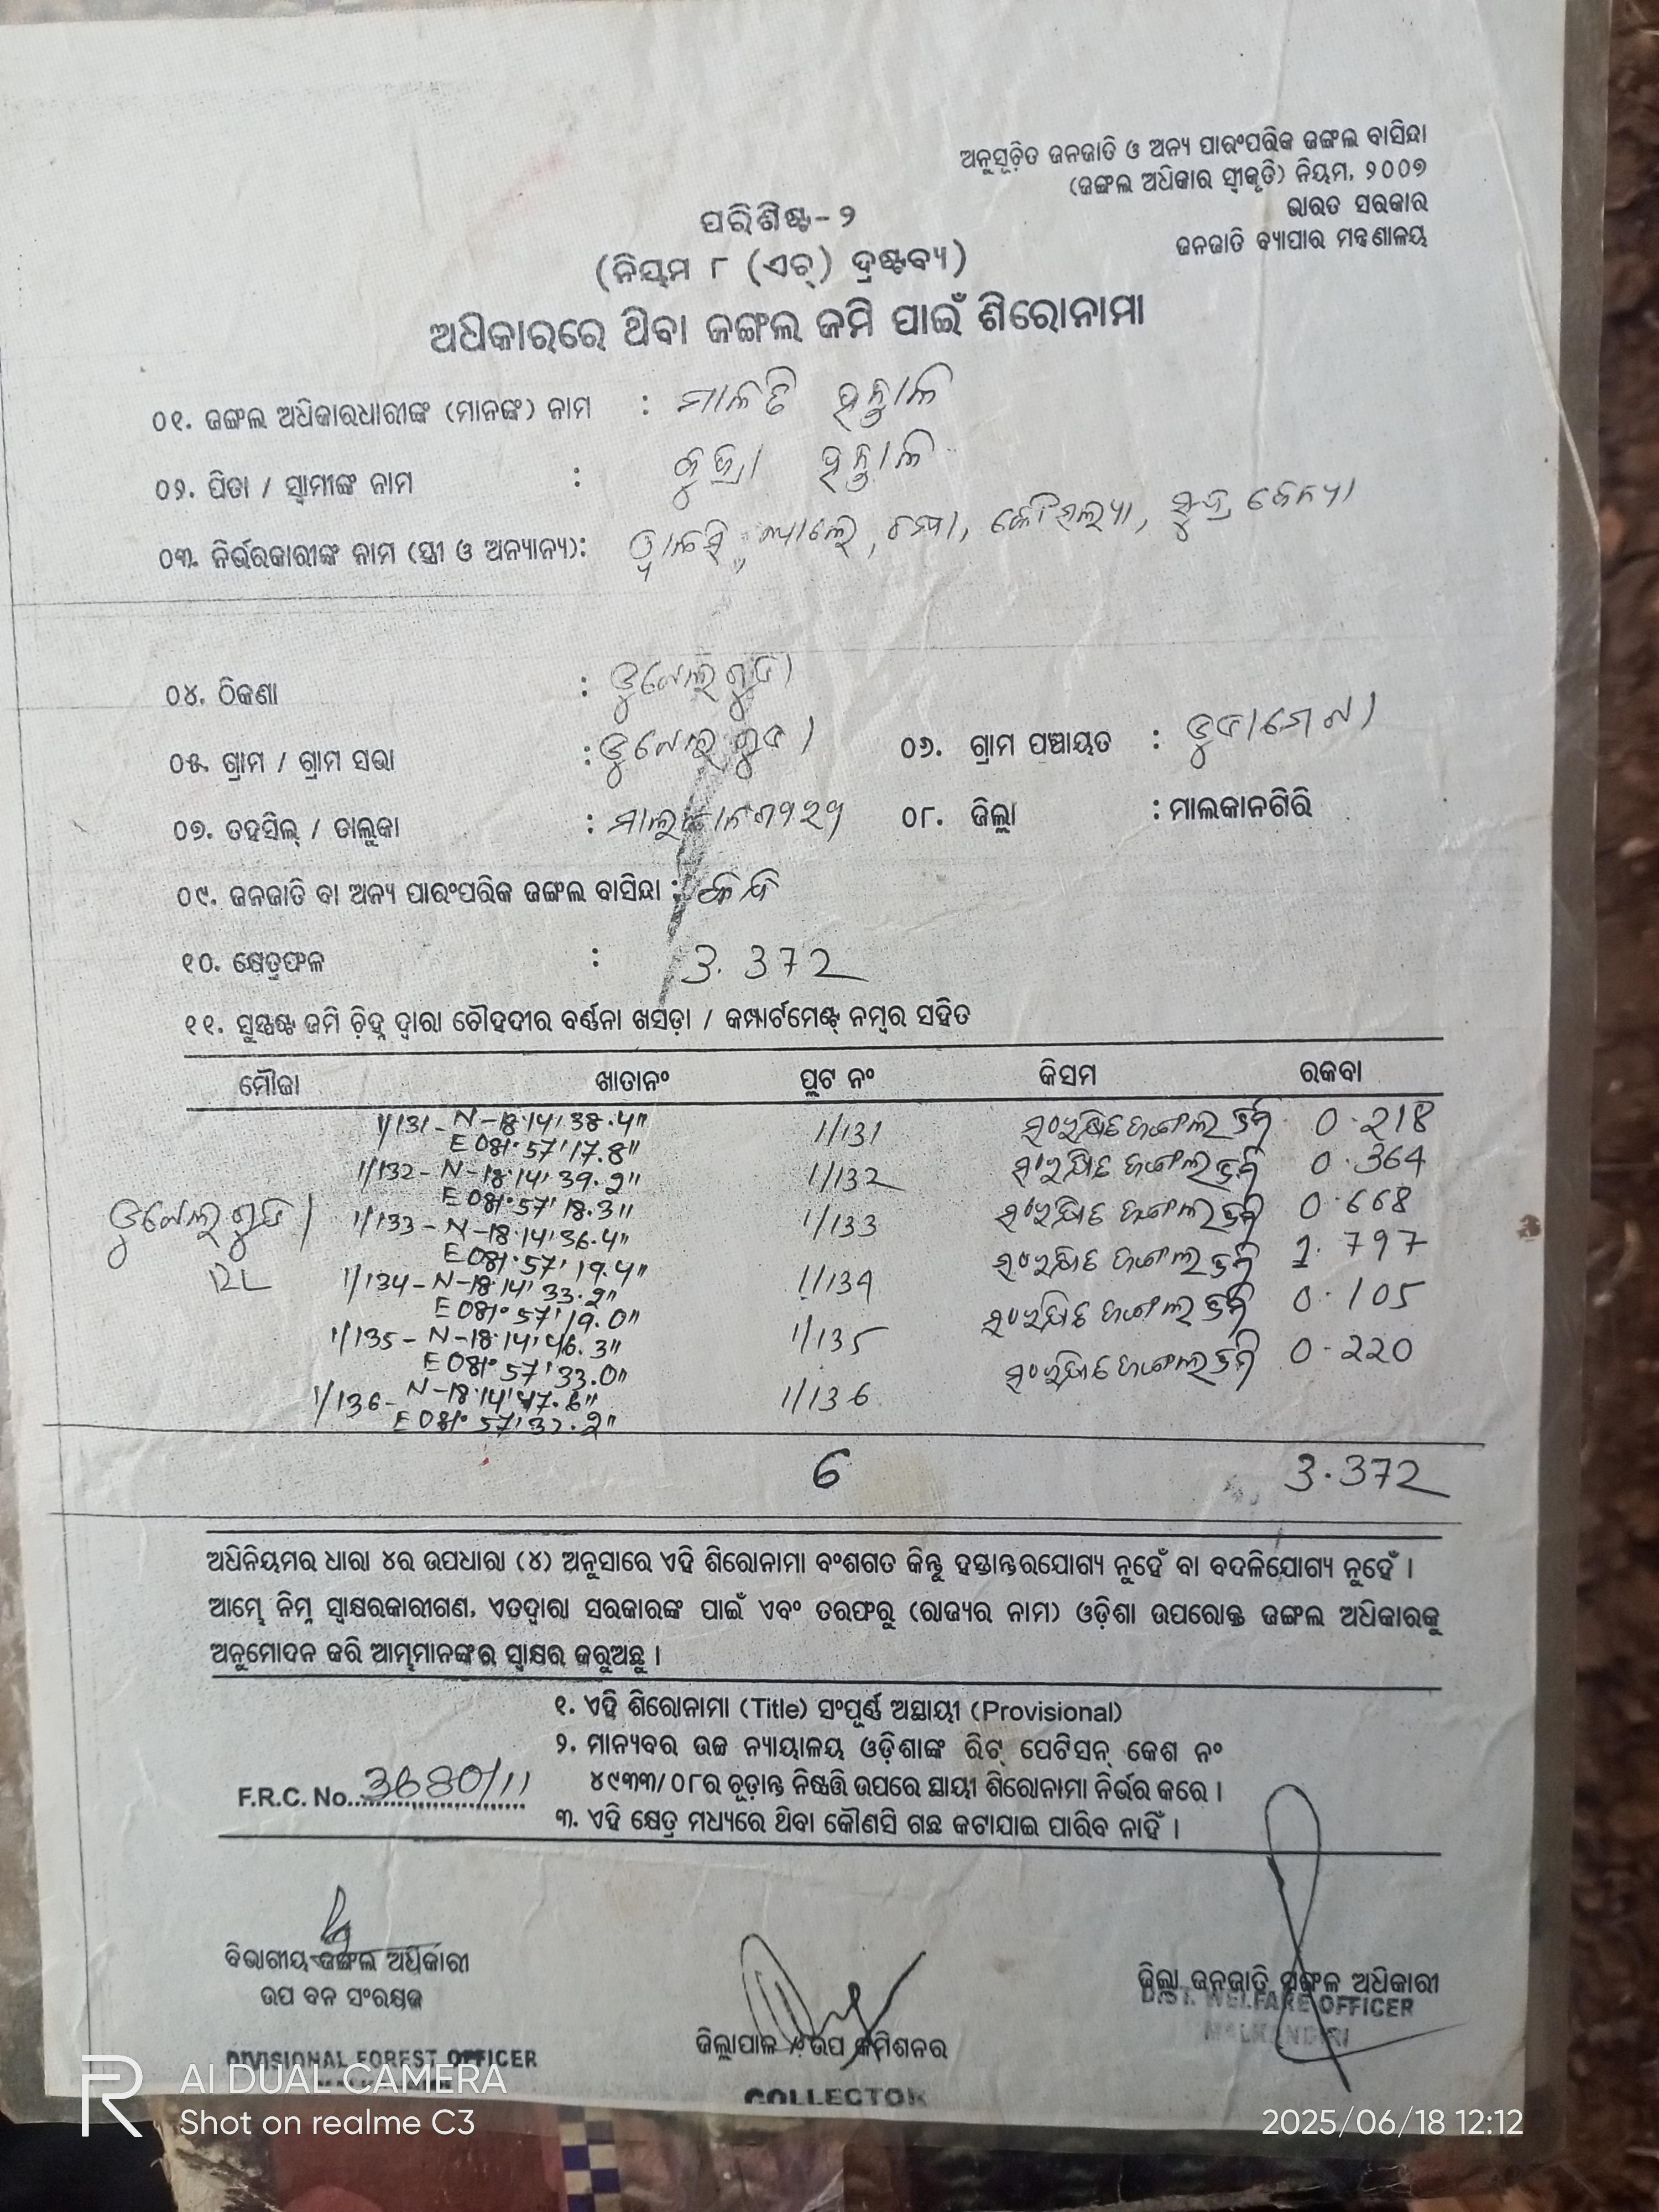 ଅନୁସୂଚିତ ଜନଜାତି ଓ ଅନ୍ୟ ପାରଂପରିକ ଜଙ୍ଗଲ ବାସିନ୍ଦା
(ଜଙ୍ଗଲ ଅଧିକାର ସ୍ୱୀକୃତି) ନିୟମ, ୨୦୦୭
ଭାରତ ସରକାର
ଜନଜାତି ବ୍ୟାପାର ମନ୍ତ୍ରଣାଳୟ
ପରିଶିଷ୍ଟ- ୨
(ନିୟମ ୮ (ଏଚ୍) ଦ୍ରଷ୍ଟବ୍ୟ)
ଅଧିକାରରେ ଥିବା ଜଙ୍ଗଲ ଜମି ପାଇଁ ଶିରୋନାମା
୦୧. ଜଙ୍ଗଲ ଅଧିକାରଧାରୀଙ୍କ (ମାନଙ୍କ) ନାମ : ମାଳତି
୦୨. ପିତା / ସ୍ୱାମୀଙ୍କ ନାମ :
୦୩. ନିର୍ଭରକାରୀଙ୍କ ନାମ (ସ୍ତ୍ରୀ ଓ ଅନ୍ୟାନ୍ୟ):
୦୪. ଠିକଣା :
୦୫. ଗ୍ରାମ / ଗ୍ରାମ ସଭା : ୦୬. ଗ୍ରାମ ପଞ୍ଚାୟତ :
୦୭. ତହସିଲ୍ / ତାଲୁକା : ୦୮. ଜିଲ୍ଲା : ମାଲକାନଗିରି
୦୯. ଜନଜାତି ବା ଅନ୍ୟ ପାରଂପରିକ ଜଙ୍ଗଲ ବାସିନ୍ଦା :
୧୦. କ୍ଷେତ୍ରଫଳ : 3.372
୧୧. ସୁସ୍ପଷ୍ଟ ଜମି ଚିହ୍ନ ଦ୍ୱାରା ଚୌହଦୀର ବର୍ଣ୍ଣନା ଖସଡ଼ା / କମ୍ପାର୍ଟମେଣ୍ଟ୍ ନମ୍ବର ସହିତ
ମୌଜା ଖାତାନଂ ପ୍ଲଟ ନଂ କିସମ ରକବା
1/131- N-18°14'38.4" 1/131 ସଂରକ୍ଷିତ ଜଙ୍ଗଲ ଜମି 0.218
E 081°57'17.8"
1/132- N-18°14'39.2" 1/132 ସଂରକ୍ଷିତ ଜଙ୍ଗଲ ଜମି 0.364
E 081°57'18.3"
1/133- N-18°14'36.4" 1/133 ସଂରକ୍ଷିତ ଜଙ୍ଗଲ ଜମି 0.668
E 081°57'19.4"
1/134- N-18°14'33.2" 1/134 ସଂରକ୍ଷିତ ଜଙ୍ଗଲ ଜମି 1.797
E 081°57'19.0"
1/135- N-18°14'46.3" 1/135 ସଂରକ୍ଷିତ ଜଙ୍ଗଲ ଜମି 0.105
E 081°57'33.0"
1/136- N-18°14'47.6" 1/136 ସଂରକ୍ଷିତ ଜଙ୍ଗଲ ଜମି 0.220
E 081°57'32.2"
6 3.372
ଅଧିନିୟମର ଧାରା ୪ର ଉପଧାରା (୪) ଅନୁସାରେ ଏହି ଶିରୋନାମା ବଂଶଗତ କିନ୍ତୁ ହସ୍ତାନ୍ତରଯୋଗ୍ୟ ନୁହେଁ ବା ବଦଳିଯୋଗ୍ୟ ନୁହେଁ ।
ଆମ୍ଭେ ନିମ୍ନ ସ୍ୱାକ୍ଷରକାରୀଗଣ, ଏତଦ୍ୱାରା ସରକାରଙ୍କ ପାଇଁ ଏବଂ ତରଫରୁ (ରାଜ୍ୟର ନାମ) ଓଡ଼ିଶା ଉପରୋକ୍ତ ଜଙ୍ଗଲ ଅଧିକାରକୁ
ଅନୁମୋଦନ କରି ଆମ୍ଭମାନଙ୍କର ସ୍ୱାକ୍ଷର କରୁଅଛୁ ।
୧. ଏହି ଶିରୋନାମା (Title) ସଂପୂର୍ଣ୍ଣ ଅସ୍ଥାୟୀ (Provisional)
୨. ମାନ୍ୟବର ଉଚ୍ଚ ନ୍ୟାୟାଳୟ ଓଡ଼ିଶାଙ୍କ ରିଟ୍ ପେଟିସନ୍ କେଶ ନଂ
୪୯୩୩/୦୮ର ଚୂଡ଼ାନ୍ତ ନିଷ୍ପତ୍ତି ଉପରେ ସ୍ଥାୟୀ ଶିରୋନାମା ନିର୍ଭର କରେ ।
F.R.C. No. 3680/11
୩. ଏହି କ୍ଷେତ୍ର ମଧ୍ୟରେ ଥିବା କୌଣସି ଗଛ କଟାଯାଇ ପାରିବ ନାହିଁ ।
ବିଭାଗୀୟ ଜଙ୍ଗଲ ଅଧିକାରୀ
ଉପ ବନ ସଂରକ୍ଷକ
DIVISIONAL FOREST OFFICER
ଜିଲ୍ଲାପାଳ / ଉପ କମିଶନର
COLLECTOR
ଜିଲ୍ଲା ଜନଜାତି ମଙ୍ଗଳ ଅଧିକାରୀ
DIST. WELFARE OFFICER
MALKANGIRI
AI DUAL CAMERA
Shot on realme C3
2025/06/18 12:12